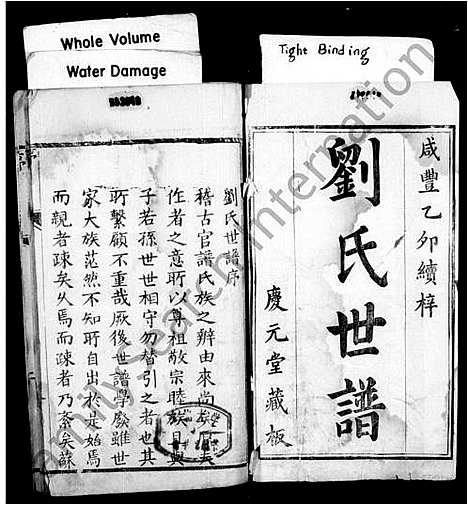 Whole Volume
Water Damage
Tight Binding
咸豐乙卯續梓
劉氏世譜
慶元堂藏板
劉氏世譜序
稽古官譜氏族之辨由來尚矣
作者之意所以尊祖敬宗睦族且與
子若孫世世相守勿替引之者也其
所繫顧不重哉厥後世譜學廢雖世
家大族茫然不知所自出於是始焉
而親者疎矣久焉而疎者乃紊矣蘇
FamilySearch International